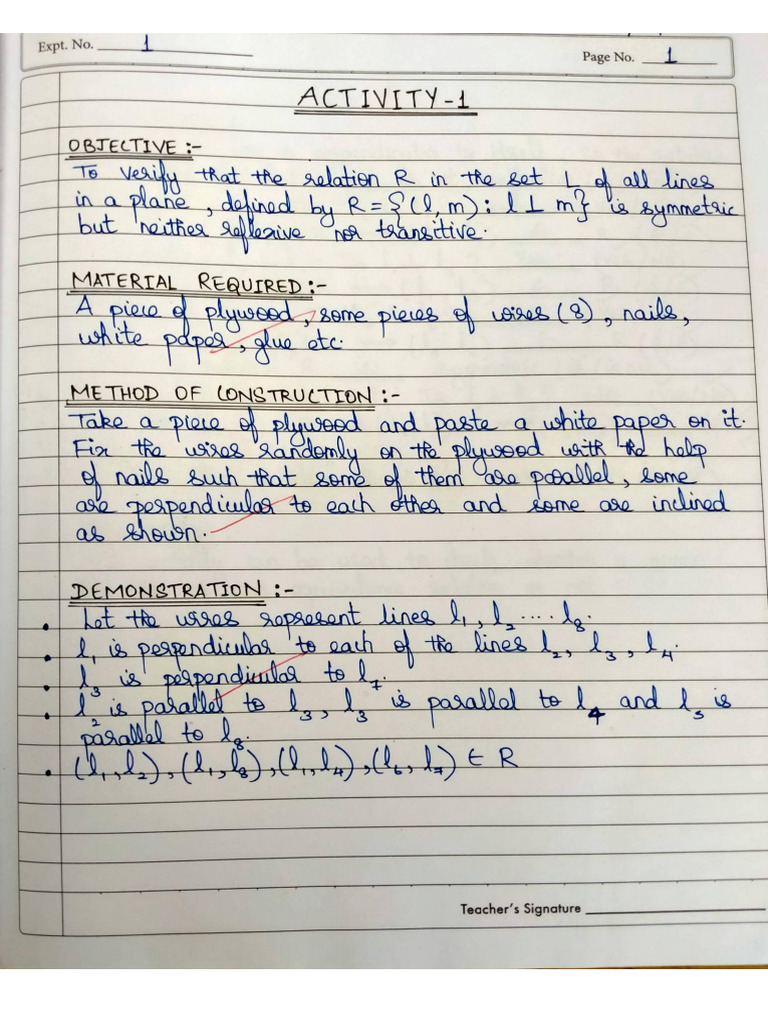 Expt. No. 1
Page No. 1
ACTIVITY-1
OBJECTIVE :-
To verify that the relation R in the set L of all lines
in a plane, defined by R = {(l, m) : l ⊥ m} is symmetric
but neither reflexive nor transitive.
MATERIAL REQUIRED :-
A piece of plywood, some pieces of wires (8), nails,
white paper, glue etc.
METHOD OF CONSTRUCTION :-
Take a piece of plywood and paste a white paper on it.
Fix the wires randomly on the plywood with the help
of nails such that some of them are parallel, some
are perpendicular to each other and some are inclined
as shown.
DEMONSTRATION :-
• Let the wires represent lines l₁, l₂ ..... l₈.
• l₁ is perpendicular to each of the lines l₂, l₃, l₄.
• l₃ is perpendicular to l₇.
• l₂ is parallel to l₃, l₃ is parallel to l₄ and l₅ is
parallel to l₈.
• (l₁, l₂), (l₁, l₃), (l₁, l₄), (l₆, l₇) ∈ R
Teacher's Signature